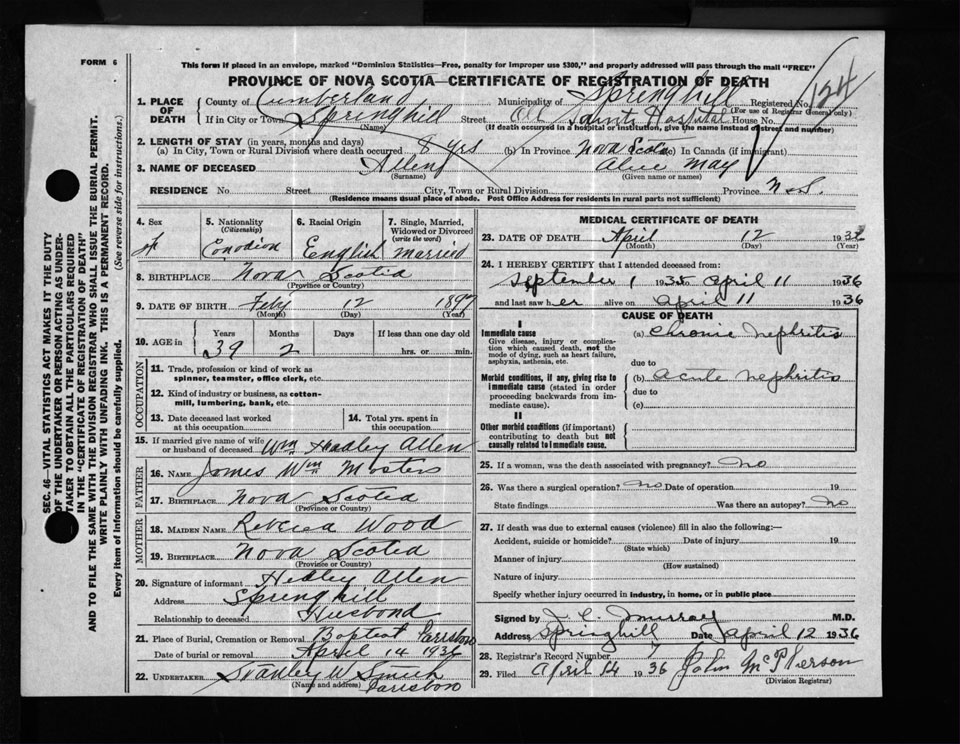 FORM 6
This form if placed in an envelope, marked "Dominion Statistics—Free, penalty for improper use $300," and properly addressed will pass through the mail "FREE"
PROVINCE OF NOVA SCOTIA—CERTIFICATE OF REGISTRATION OF DEATH
1. PLACE OF DEATH
County of Cumberland Municipality of Springhill Registered No. 124
(For use of Registrar General only)
If in City or Town Springhill Street All Saints Hospital House No.
(Name) (If death occurred in a hospital or institution, give the name instead of street and number)
2. LENGTH OF STAY (in years, months and days)
(a) In City, Town or Rural Division where death occurred 8 yrs (b) In Province Nova Scotia (c) In Canada (if immigrant)
3. NAME OF DECEASED Allen Alice May
(Surname) (Given name or names)
RESIDENCE No. Street City, Town or Rural Division Province N.S.
(Residence means usual place of abode. Post Office Address for residents in rural parts not sufficient)
4. Sex
5. Nationality (Citizenship)
6. Racial Origin
7. Single, Married, Widowed or Divorced (write the word)
Canadian English Married
8. BIRTHPLACE Nova Scotia
(Province or Country)
9. DATE OF BIRTH Feby 12 1897
(Month) (Day) (Year)
10. AGE in Years Months Days If less than one day old
39 2 hrs. or min.
OCCUPATION
11. Trade, profession or kind of work as spinner, teamster, office clerk, etc.
12. Kind of industry or business, as cotton-mill, lumbering, bank, etc.
13. Date deceased last worked at this occupation
14. Total yrs. spent in this occupation
15. If married give name of wife or husband of deceased Wm Headley Allen
FATHER
16. NAME James Wm Masters
17. BIRTHPLACE Nova Scotia
(Province or Country)
MOTHER
18. MAIDEN NAME Rebecca Wood
19. BIRTHPLACE Nova Scotia
(Province or Country)
20. Signature of informant Hedley Allen
Address Springhill
Relationship to deceased Husband
21. Place of Burial, Cremation or Removal Baptist Parrsboro
Date of burial or removal April 14 1936
22. UNDERTAKER Stanley W Smith
(Name and address) Parrsboro
MEDICAL CERTIFICATE OF DEATH
23. DATE OF DEATH April 12
(Month) (Day) (Year)
24. I HEREBY CERTIFY that I attended deceased from:
September 1 1935 to April 11 1936
and last saw her alive on April 11 1936
CAUSE OF DEATH
I
Immediate cause
Give disease, injury or complication which caused death, not the mode of dying, such as heart failure, asphyxia, asthenia, etc.
(a) Chronic nephritis
due to
Morbid conditions, if any, giving rise to immediate cause (stated in order proceeding backwards from immediate cause).
(b) Acute nephritis
due to
(c)
II
Other morbid conditions (if important) contributing to death but not causally related to immediate cause.
25. If a woman, was the death associated with pregnancy? No
26. Was there a surgical operation? No Date of operation 19
State findings Was there an autopsy? No
27. If death was due to external causes (violence) fill in also the following:—
Accident, suicide or homicide? Date of injury 19
(State which)
Manner of injury
(How sustained)
Nature of injury
Specify whether injury occurred in industry, in home, or in public place
Signed by J. C. Murray M.D.
Address Springhill Date April 12 1936
28. Registrar's Record Number
29. Filed April 14 1936 John McPherson
(Division Registrar)
SEC. 46—VITAL STATISTICS ACT MAKES IT THE DUTY
OF THE UNDERTAKER OR PERSON ACTING AS UNDER-
TAKER TO OBTAIN ALL THE PARTICULARS REQUIRED
IN THE "CERTIFICATE OF REGISTRATION OF DEATH"
AND TO FILE THE SAME WITH THE DIVISION REGISTRAR WHO SHALL ISSUE THE BURIAL PERMIT.
WRITE PLAINLY WITH UNFADING INK. THIS IS A PERMANENT RECORD.
Every item of information should be carefully supplied. (See reverse side for instructions.)